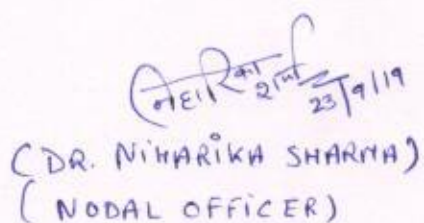 निहारिका शर्मा
23/9/19
(DR. NIHARIKA SHARMA)
(NODAL OFFICER)